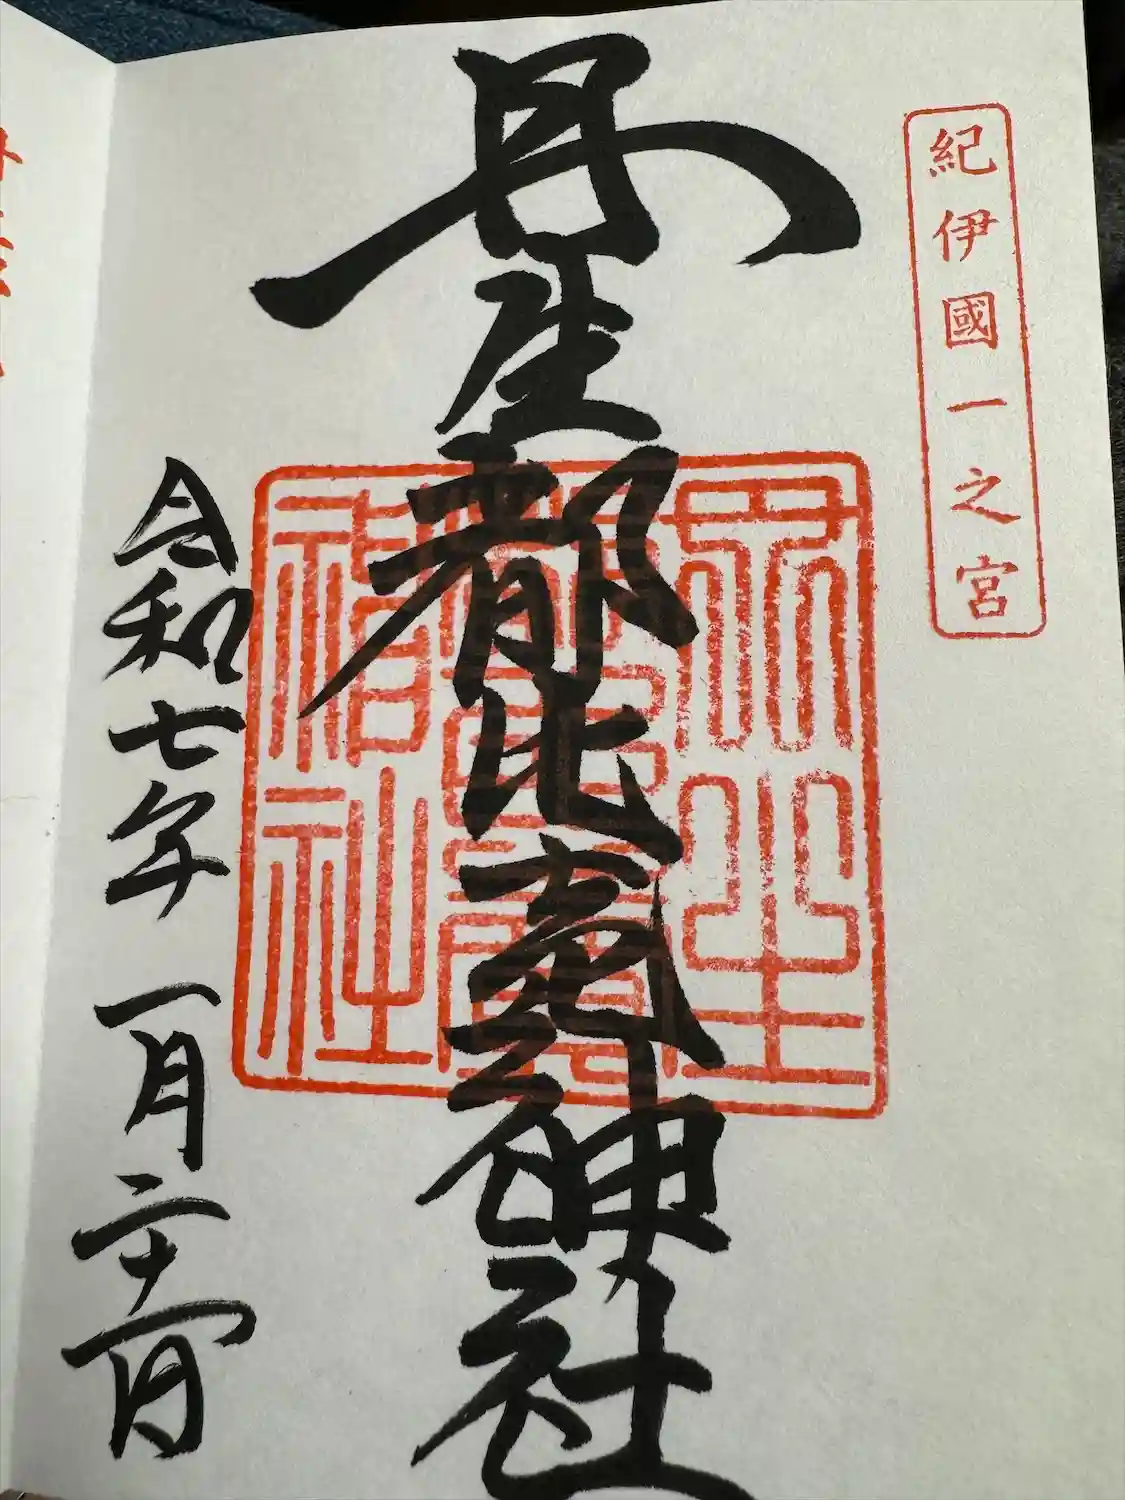 紀伊國一之宮
丹生都比賣神社
丹生
神社
令和七年一月二十一日